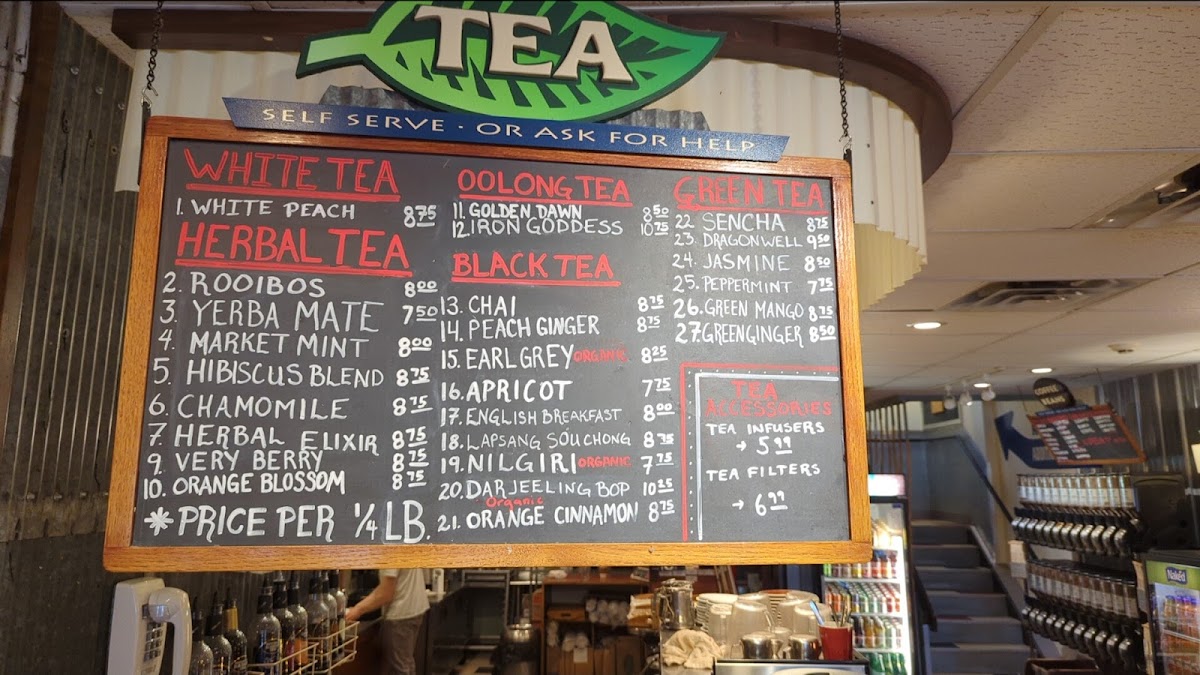 TEA
SELF SERVE · OR ASK FOR HELP
WHITE TEA
1. WHITE PEACH 8 75
HERBAL TEA
2. ROOIBOS 8 00
3. YERBA MATE 7 50
4. MARKET MINT 8 00
5. HIBISCUS BLEND 8 75
6. CHAMOMILE 8 75
7. HERBAL ELIXIR 8 75
9. VERY BERRY 8 75
10. ORANGE BLOSSOM 8 75
*PRICE PER 1/4 LB.
OOLONG TEA
11. GOLDEN DAWN 8 50
12. IRON GODDESS 10 75
BLACK TEA
13. CHAI 8 75
14. PEACH GINGER 8 75
15. EARL GREY ORGANIC 8 25
16. APRICOT 7 75
17. ENGLISH BREAKFAST 8 00
18. LAPSANG SOUCHONG 8 75
19. NILGIRI ORGANIC 7 75
20. DARJEELING BOP 10 25
Organic
21. ORANGE CINNAMON 8 75
GREEN TEA
22 SENCHA 8 75
23. DRAGONWELL 9 50
24. JASMINE 8 50
25. PEPPERMINT 7 75
26. GREEN MANGO 8 75
27. GREEN GINGER 8 50
TEA
ACCESSORIES
TEA INFUSERS
→ 5 99
TEA FILTERS
→ 6 99
COFFEE
BEANS
Naked